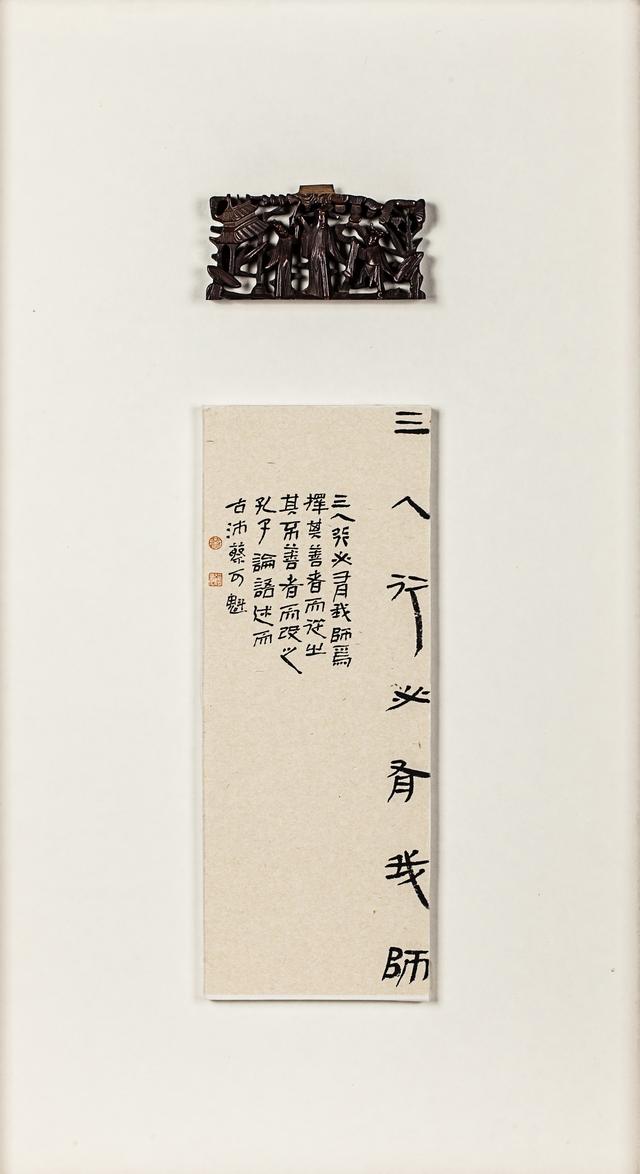 三人行必有我師
三人行必有我師焉
擇其善者而從之
其不善者而改之
孔子論語述而
古沛蔡可魁